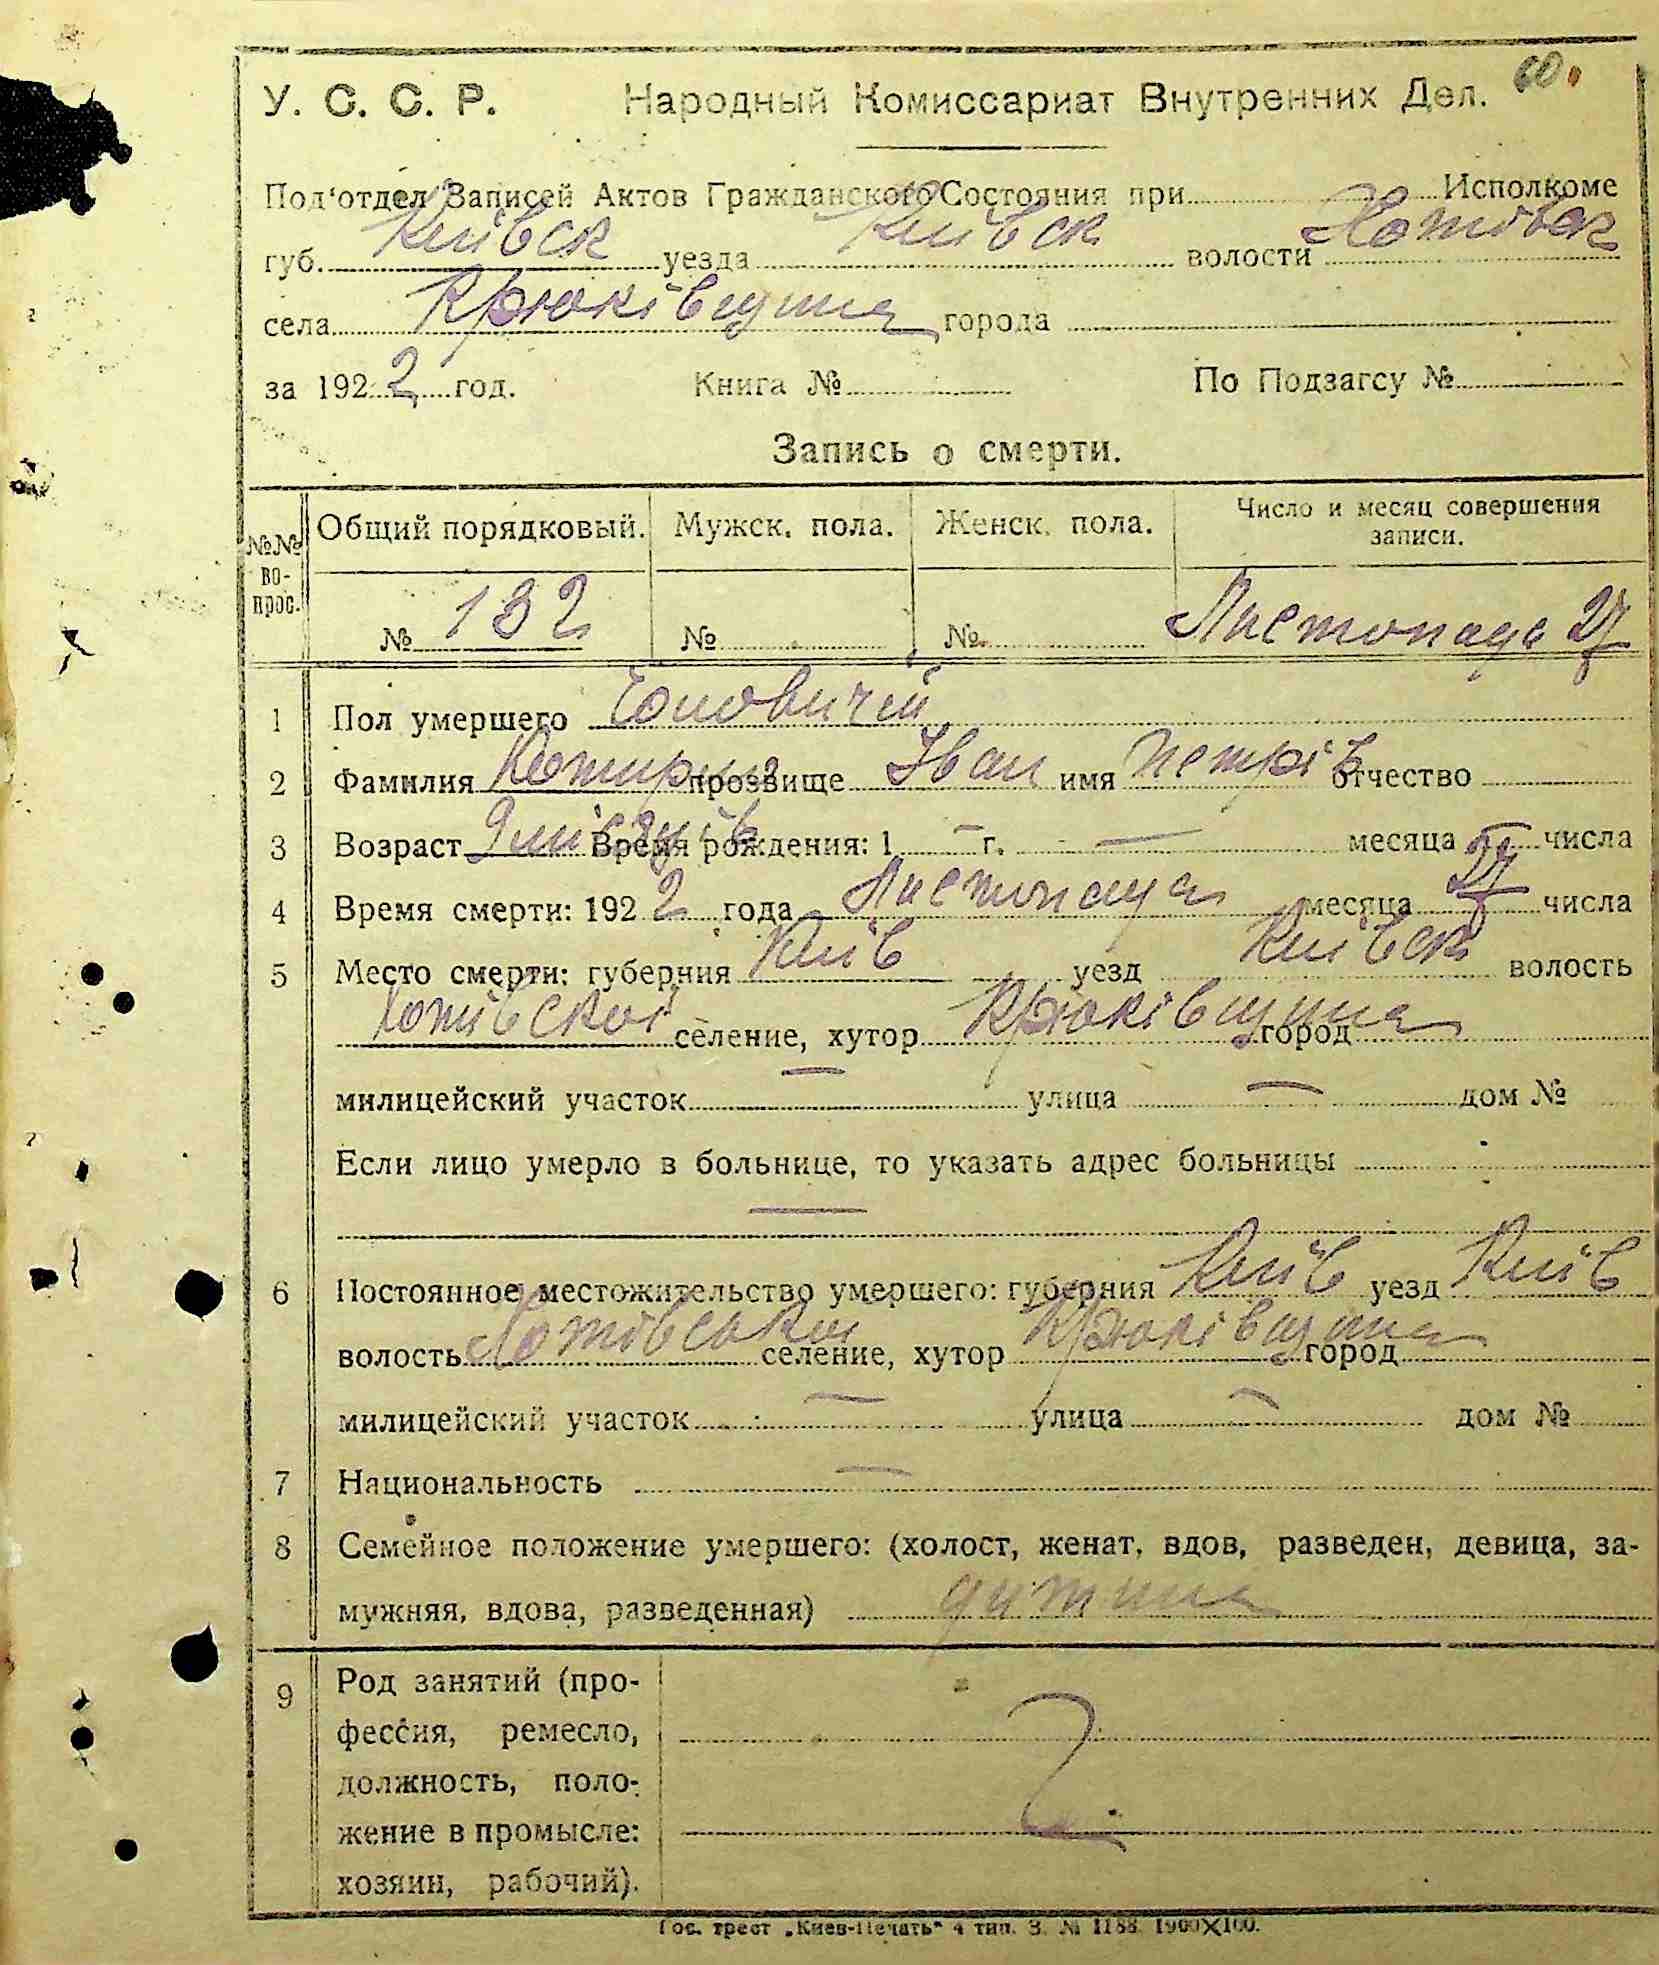 60.
У. С. С. Р. Народный Комиссариат Внутренних Дел.
Под'отдел Записей Актов Гражданского Состояния при Исполкоме
губ. Київск уезда Київск волости Хотівск
села Крюківщина города
за 1922 год. Книга № По Подзагсу №
Запись о смерти.
№№ вопрос. Общий порядковый. Мужск. пола. Женск. пола. Число и месяц совершения записи.
№ 132 № № Листопада 27
1 Пол умершего Чоловичій
2 Фамилия прозвище Іван имя Петрів отчество
3 Возраст Время рождения: 1 — г. — месяца — числа
4 Время смерти: 1922 года Листопада месяца 27 числа
5 Место смерти: губерния Київ уезд Київск волость
Хотівской селение, хутор Крюківщина город
милицейский участок — улица — дом №
Если лицо умерло в больнице, то указать адрес больницы
—
6 Постоянное местожительство умершего: губерния Київ уезд Київ
волость Хотівської селение, хутор Крюківщина город
милицейский участок — улица — дом №
7 Национальность —
8 Семейное положение умершего: (холост, женат, вдов, разведен, девица, за-
мужняя, вдова, разведенная) дитина
9 Род занятий (про-
фессия, ремесло,
должность, поло-
жение в промысле:
хозяин, рабочий).
Гос. трест „Киев-Печать" 4 тип. З. № 1188. 1900×100.